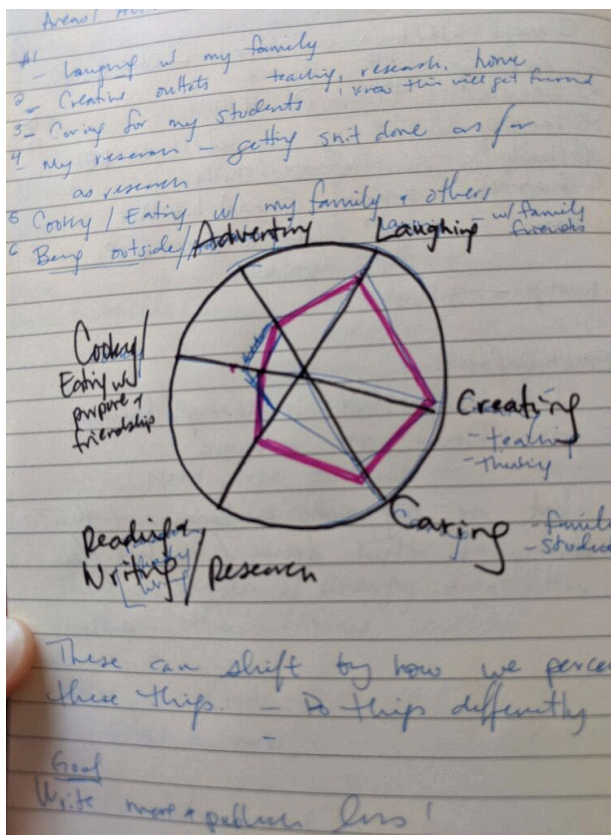 Areas/
#1 - Laughing w my family
2 - Creative outlets teaching, research, home
3 - Caring for my students I know this will get turned
4 - My research - getting shit done as far
as research
5 Cooky / Eating w/ my family + others
6 Being outside/
Adventing
Laughing
- w/ family
friends
Cooky/
Eating w/
purpose +
friendship
Creating
- teaching
- thinking
Caring
- family
- studen
Reading +
Writing / Research
These can shift by how we perce
these things. - Do things differently
Goal
Write more + publish less!